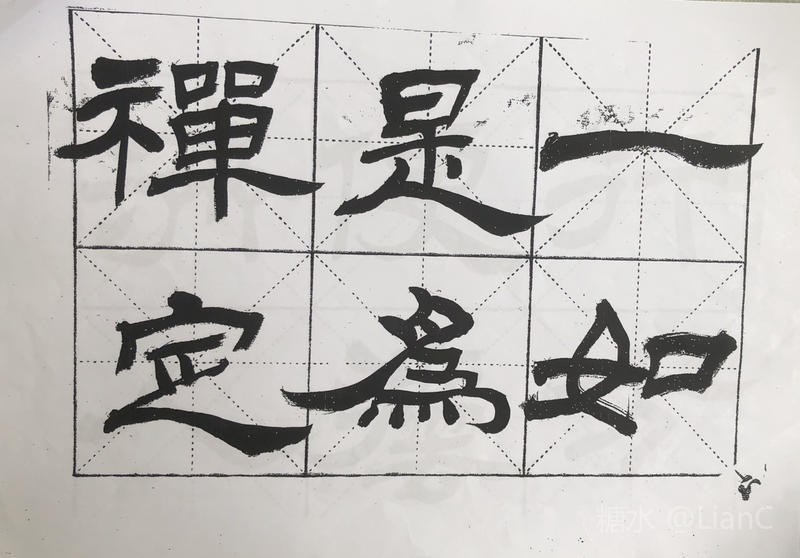 一如
是為
禪定
糖水 @LianC